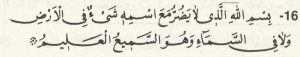 16- بِسْمِ اللهِ الَّذِي لَا يَضُرُّ مَعَ اسْمِهِ شَىْءٌ فِي الْاَرْضِ
وَلَا فِي السَّمَآءِ وَهُوَ السَّمِيعُ الْعَلِيمُ ※